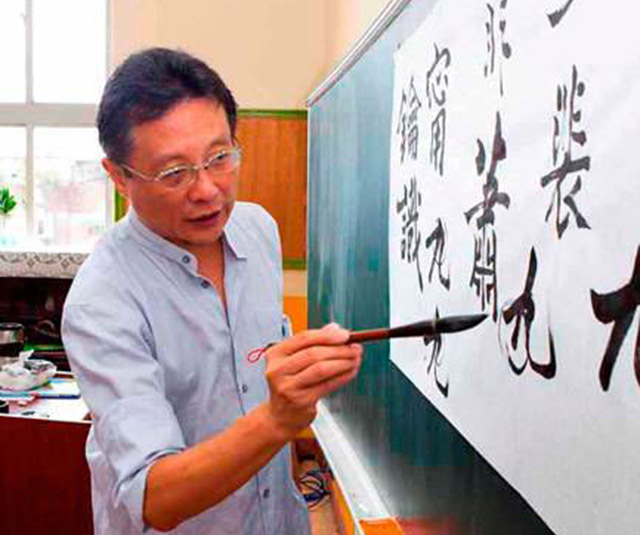 裴九
非蕭九
甯九
鑰識九